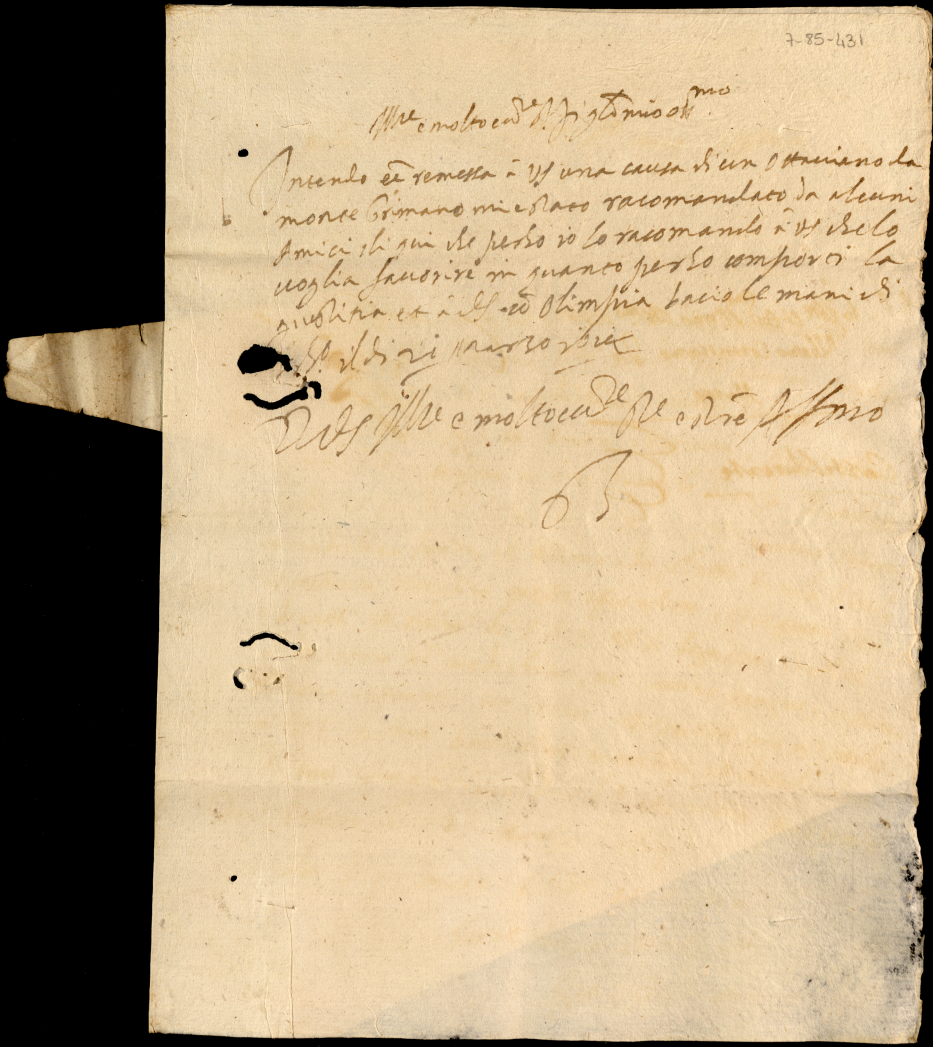 7-85-431
Ill.re e molto ecc.te S. figl. mio oss.mo
Intendo eē remessa à VS una causa di un Ottaviano da
monte Grimano mi e stato racomandato da alcuni
Amici di qui che perho io lo racomando à VS che lo
voglia favorire in quanto perho comporti la
giustitia et à VS cō Olimpia bacio le mani di
il di 21 marzo
Di VS Ill.re e molto ecc.te